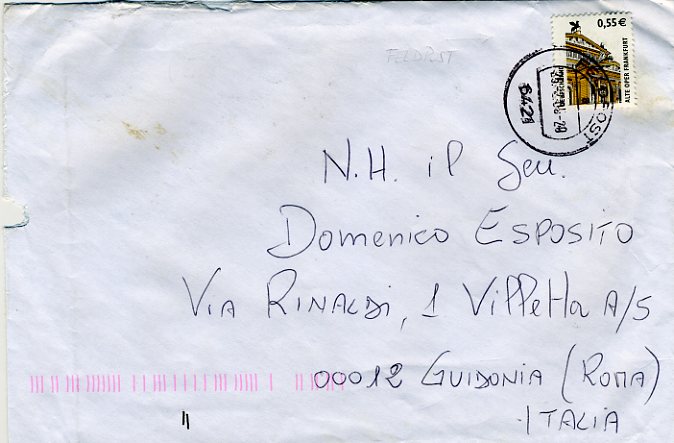 0,55 €
ALTE OPER FRANKFURT
FELDPOST
6421
N.H. il Gen.
Domenico ESPOSITO
VIA RINALDI, 1 Villetta A/5
00012 GUIDONIA (ROMA)
ITALIA